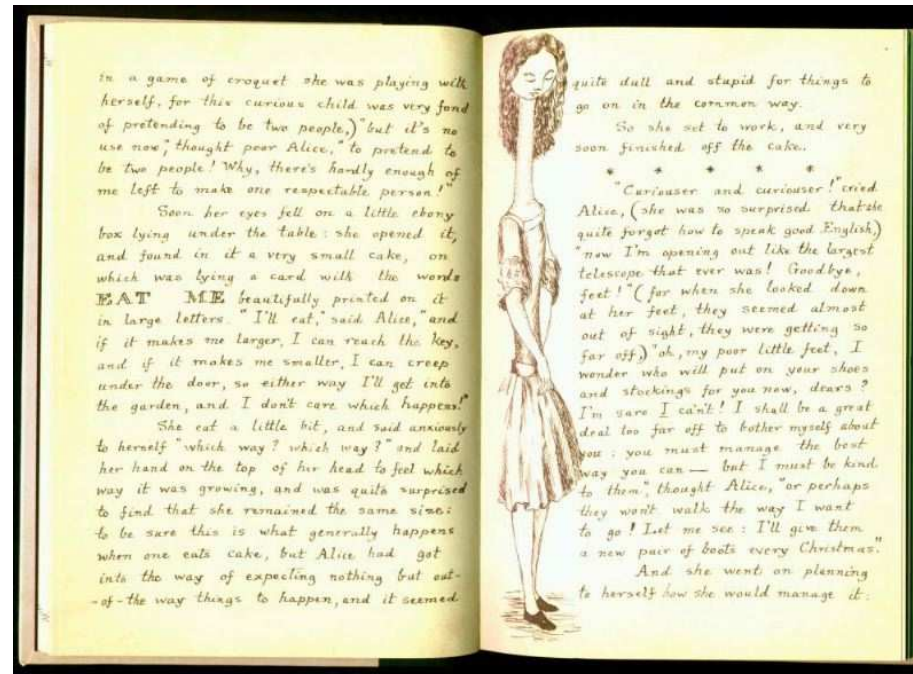 in a game of croquet she was playing with
herself, for this curious child was very fond
of pretending to be two people,) "but it's no
use now," thought poor Alice, "to pretend to
be two people! Why, there's hardly enough of
me left to make one respectable person!"
Soon her eyes fell on a little ebony
box lying under the table: she opened it,
and found in it a very small cake, on
which was lying a card with the words
EAT ME beautifully printed on it
in large letters. "I'll eat," said Alice, "and
if it makes me larger, I can reach the key,
and if it makes me smaller, I can creep
under the door, so either way I'll get into
the garden, and I don't care which happens!"
She eat a little bit, and said anxiously
to herself "which way? which way?" and laid
her hand on the top of her head to feel which
way it was growing, and was quite surprised
to find that she remained the same size:
to be sure this is what generally happens
when one eats cake, but Alice had got
into the way of expecting nothing but out-
-of-the way things to happen, and it seemed
quite dull and stupid for things to
go on in the common way.
So she set to work, and very
soon finished off the cake.
* * * * * *
"Curiouser and curiouser!" cried
Alice, (she was so surprised that she
quite forgot how to speak good English,)
"now I'm opening out like the largest
telescope that ever was! Goodbye,
feet!" (for when she looked down
at her feet, they seemed almost
out of sight, they were getting so
far off,) "oh, my poor little feet, I
wonder who will put on your shoes
and stockings for you now, dears?
I'm sure I can't! I shall be a great
deal too far off to bother myself about
you: you must manage the best
way you can — but I must be kind
to them", thought Alice, "or perhaps
they won't walk the way I want
to go! Let me see: I'll give them
a new pair of boots every Christmas."
And she went on planning
to herself how she would manage it: